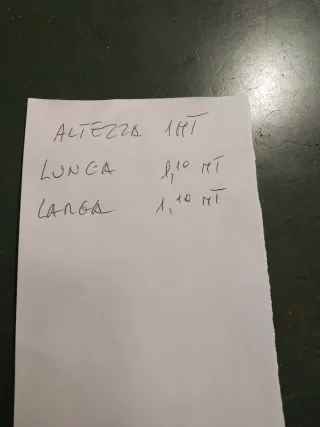 ALTEZZA 1 MT
LUNGA 1,10 MT
LARGA 1,10 MT